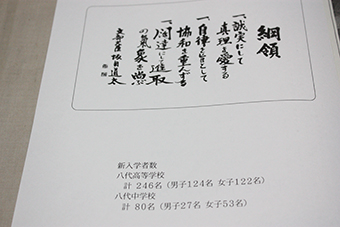 綱領
一、誠実にして
真理を愛する
一、自律を旨として
協和を重んずる
一、闊達にして進取
の気象を尚ぶ
坂田道太
新入学者数
八代高等学校
計 246名(男子124名 女子122名)
八代中学校
計 80名(男子27名 女子53名)